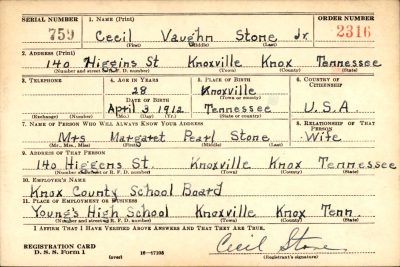 SERIAL NUMBER 1. NAME (Print) ORDER NUMBER
759 Cecil Vaughn Stone Jr. 2316
(First) (Middle) (Last)
2. ADDRESS (Print)
140 Higgins St Knoxville Knox Tennessee
(Number and street or R. F. D. number) (Town) (County) (State)
3. TELEPHONE 4. AGE IN YEARS 5. PLACE OF BIRTH 6. COUNTRY OF CITIZENSHIP
28 Knoxville
DATE OF BIRTH (Town or county)
April 3 1912 Tennessee U.S.A.
(Exchange) (Number) (Mo.) (Day) (Yr.) (State or country)
7. NAME OF PERSON WHO WILL ALWAYS KNOW YOUR ADDRESS 8. RELATIONSHIP OF THAT PERSON
Mrs Margaret Pearl Stone Wife
(Mr., Mrs., Miss) (First) (Middle) (Last)
9. ADDRESS OF THAT PERSON
140 Higgens St. Knoxville Knox Tennessee
(Number and street or R. F. D. number) (Town) (County) (State)
10. EMPLOYER'S NAME
Knox County School Board
11. PLACE OF EMPLOYMENT OR BUSINESS
Young's High School Knoxville Knox Tenn.
(Number and street or R. F. D. number) (Town) (County) (State)
I AFFIRM THAT I HAVE VERIFIED ABOVE ANSWERS AND THAT THEY ARE TRUE.
REGISTRATION CARD
D. S. S. Form 1 (over) 16-17105 Cecil Stone
(Registrant's signature)